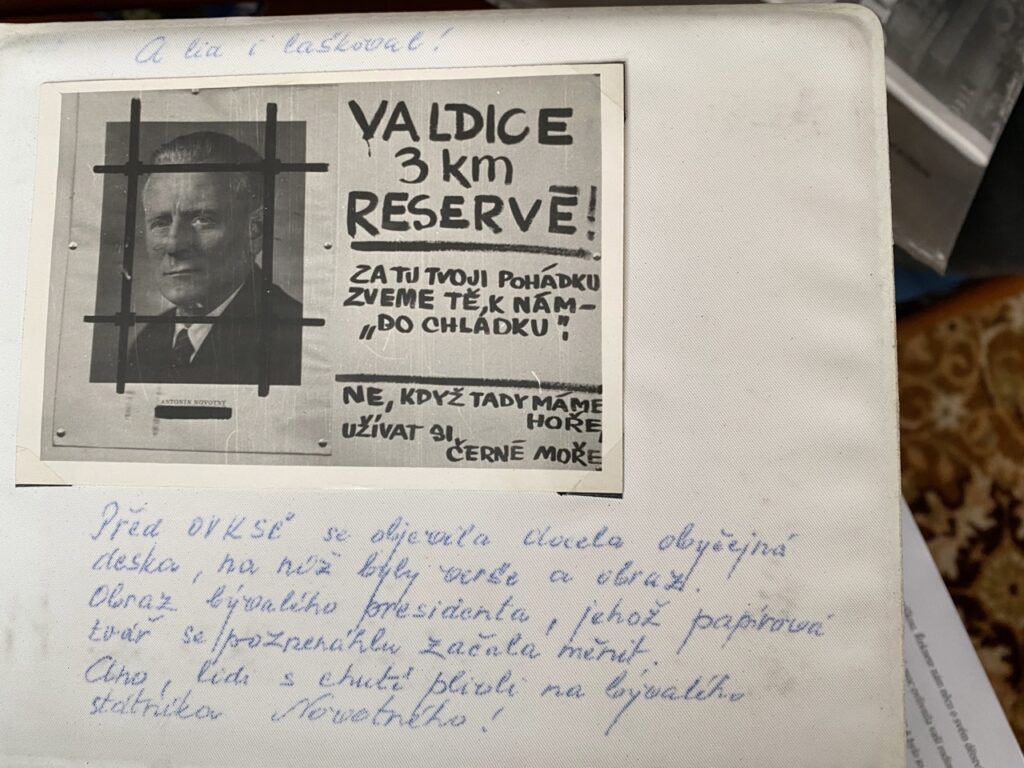 A lid i laškoval!
VALDICE
3 km
RESERVĒ!
ZA TU TVOJI POHÁDKU
ZVEME TĚ, K NÁM –
„DO CHLÁDKU“!
NE, KDYŽ TADY MÁME
HOŘE,
UŽÍVAT SI
ČERNÉ MOŘE
ANTONÍN NOVOTNÝ
Před OVKSČ se objevila docela obyčejná
deska, na níž byly verše a obraz.
Obraz bývalého presidenta, jehož papírová
tvář se poznenáhlu začala měnit.
Ano, lidi s chutí plivli na bývalého
státníka Novotného!